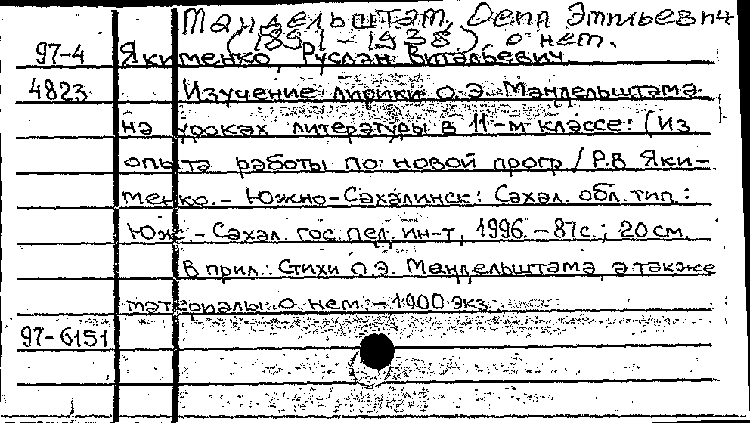 Мандельштам, Осип Эмильевич
(1891-1938) о нем.
97-4 Якименко, Руслан Витальевич.
4823 Изучение лирики О.Э. Мандельштама
на уроках литературы в 11-м классе: (Из
опыта работы по новой прогр / Р.В Яки-
менко. - Южно-Сахалинск: Сахал. обл. тип.:
Юж - Сахал. гос. пед. ин-т, 1996. - 87с.; 20 см.
В прил.: Стихи О.Э. Мандельштама, а также
материалы о нем. - 1000 экз.
97-6151